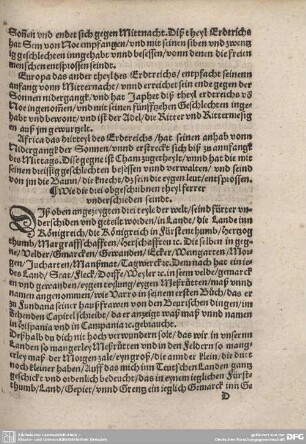 Sonen vnd endet sich gegen Mittnacht. Diß theyl Erdtrichs
hat Sem von Noe empfangen/ vnd mit seinen siben vnd zwentz
ig geschlechten inngehabt vnnd besessen/ vonn denen die freien
menschen entsprossen seindt.
Europa das ander theyl des Erdtrichs/ entpfacht seinenn
anfang vonn Mitternacht/ vnnd erreichet sein ende gegen der
Sonnen nidergangk/ vnd hat Japhet diß theyl erdtrichs võ
Noe ingenommen/ vnd mit seinen fünffzehen Geschlechten inge
habt vnd bewont/ vnnd ist der Adel/ die Ritter vnd Rittermessig
en auß jm gewurtzelt.
Africa das dritteyl des Erdtrichs/ hat seinen anhab vonn
Nidergangk der Sonnen/ vnnd erstreckt sich biß zu anfangk
des Mittags. Dise gegne ist Cham zugetheylt/ vnnd hat die mit
seinen dreissig geschlechten besessen vnnd verwalten/ vnd seind
von jm die Baurn/ die knecht/ vnd entsprossen.
Wie die drei obgeschribnen theyl ferrer
vnderschieden seindt.
Diß oben angezeygten drei teyle der welt/ seind fürter vn
derschiden vnd geteilt worden/ in Lande/ die Lande inn
Königreich/ die Königreich in Fürstenthumb/ hertzog
thumb/ Margraffschafften/ herschafften ꝛc. Die selben in gegn
e/ Velder/ Gmarcken/ Gewanden/ Ecker/ Weingarten/ Mor
gen/ Jucharten/ Manßmat/ Tagwerck ꝛc. Demnach hat ein ie
des Land/ Stat/ Fleck/ Dorff/ Weyler ꝛc. in seim velde/ gemarck
en vnd gewanden/ eygen teylung/ eygen Meßrütten/ maß vnnd
namen angenommen/ wie Varro in seinem ersten Büch/ das er
zu Fundania seiner haußfrawen von den Bewrischen dingen/ im
zehenden Capitel schreibt/ da er anzeige was maß vnnd namen
inn Hispania vnd in Campania ꝛc. gebraucht.
Deßhalb du dich nit hoch verwundern solt/ das wir in vnsern
Landen so mangerley Meßrütten vnd in den Feldern so mang
erley maß der Morgenzale/ eyn groß/ die annder klein/ die dritt
noch kleiner haben/ Auß das mich inn Teutschen Landen gantz
geschickt vnd ordenlich bedeucht/ das in eynem ieglichen Fürste
thumb/ Land/ Gepiet/ vnnd Grentz ein ieglich Gmarck inn Ge
D